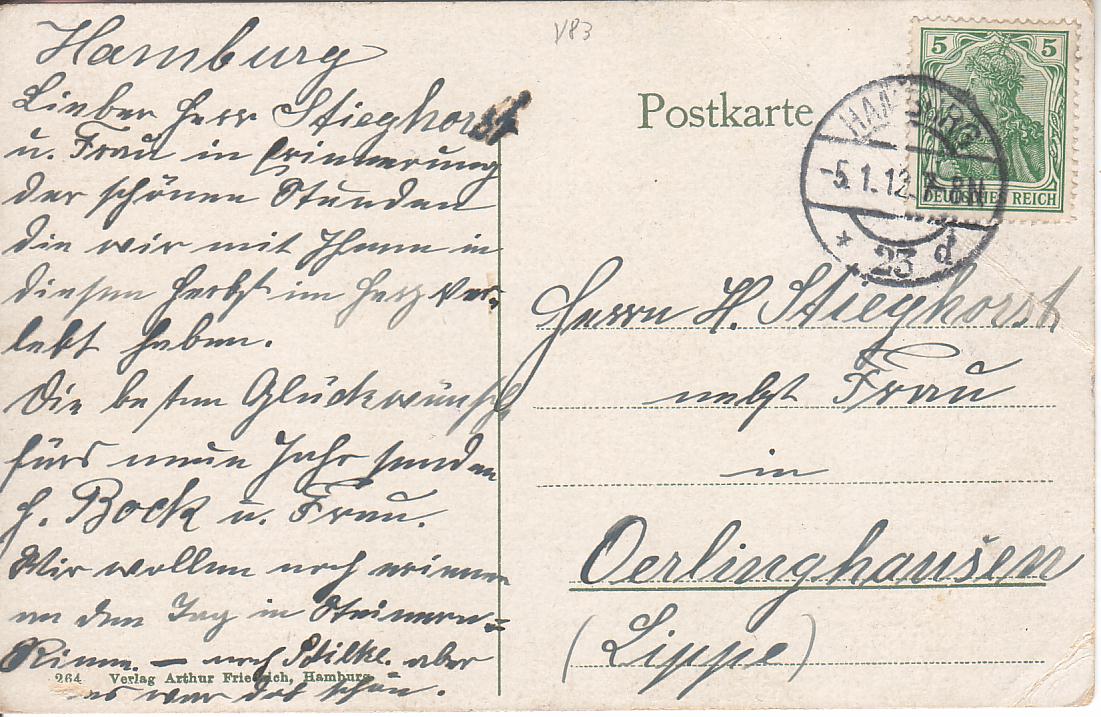 Hamburg
Lieber Herr Stieghorst
u. Frau in Erinnerung
der schönen Stunden
die wir mit Ihnen in
diesen Herbst im Harz ver-
lebt haben.
Die besten Glückwünsch
fürs neue Jahr senden
H. Bock u. Frau.
Wir wollen noch erinnern
an den Tag in Steinerne-
Rinne. — nach aber
es war doch schön.
264 Verlag Arthur Friedrich, Hamburg
V83
Postkarte
5 5
DEUTSCHES REICH
HAMBURG
-5.1.12. 7-8N
* 23 d
Herrn H. Stieghorst
nebst Frau
in
Oerlinghausen
(Lippe)